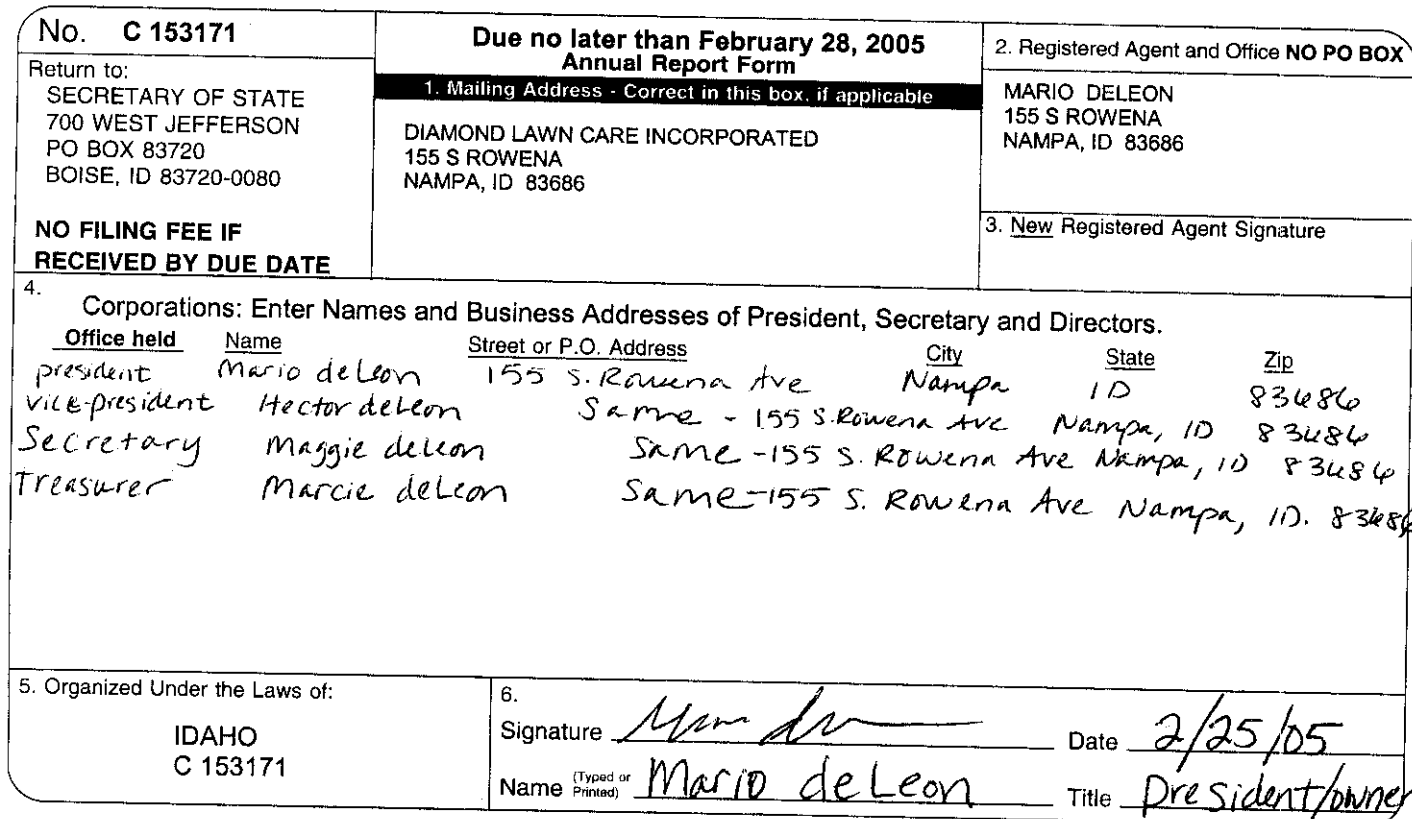 No. C 153171
Return to:
SECRETARY OF STATE
700 WEST JEFFERSON
PO BOX 83720
BOISE, ID 83720-0080
NO FILING FEE IF
RECEIVED BY DUE DATE
Due no later than February 28, 2005
Annual Report Form
1. Mailing Address - Correct in this box, if applicable
DIAMOND LAWN CARE INCORPORATED
155 S ROWENA
NAMPA, ID 83686
2. Registered Agent and Office NO PO BOX
MARIO DELEON
155 S ROWENA
NAMPA, ID 83686
3. New Registered Agent Signature
4.
Corporations: Enter Names and Business Addresses of President, Secretary and Directors.
Office held Name Street or P.O. Address City State Zip
president Mario deLeon 155 S. Rowena Ave Nampa ID 83686
vice-president Hector deLeon Same - 155 S. Rowena Ave Nampa, ID 83686
Secretary Maggie deLeon Same - 155 S. Rowena Ave Nampa, ID 83686
Treasurer Marcie deLeon Same - 155 S. Rowena Ave Nampa, ID. 83686
5. Organized Under the Laws of:
IDAHO
C 153171
6.
Signature Date 2/25/05
Name (Typed or Printed) Mario deLeon Title President/owner